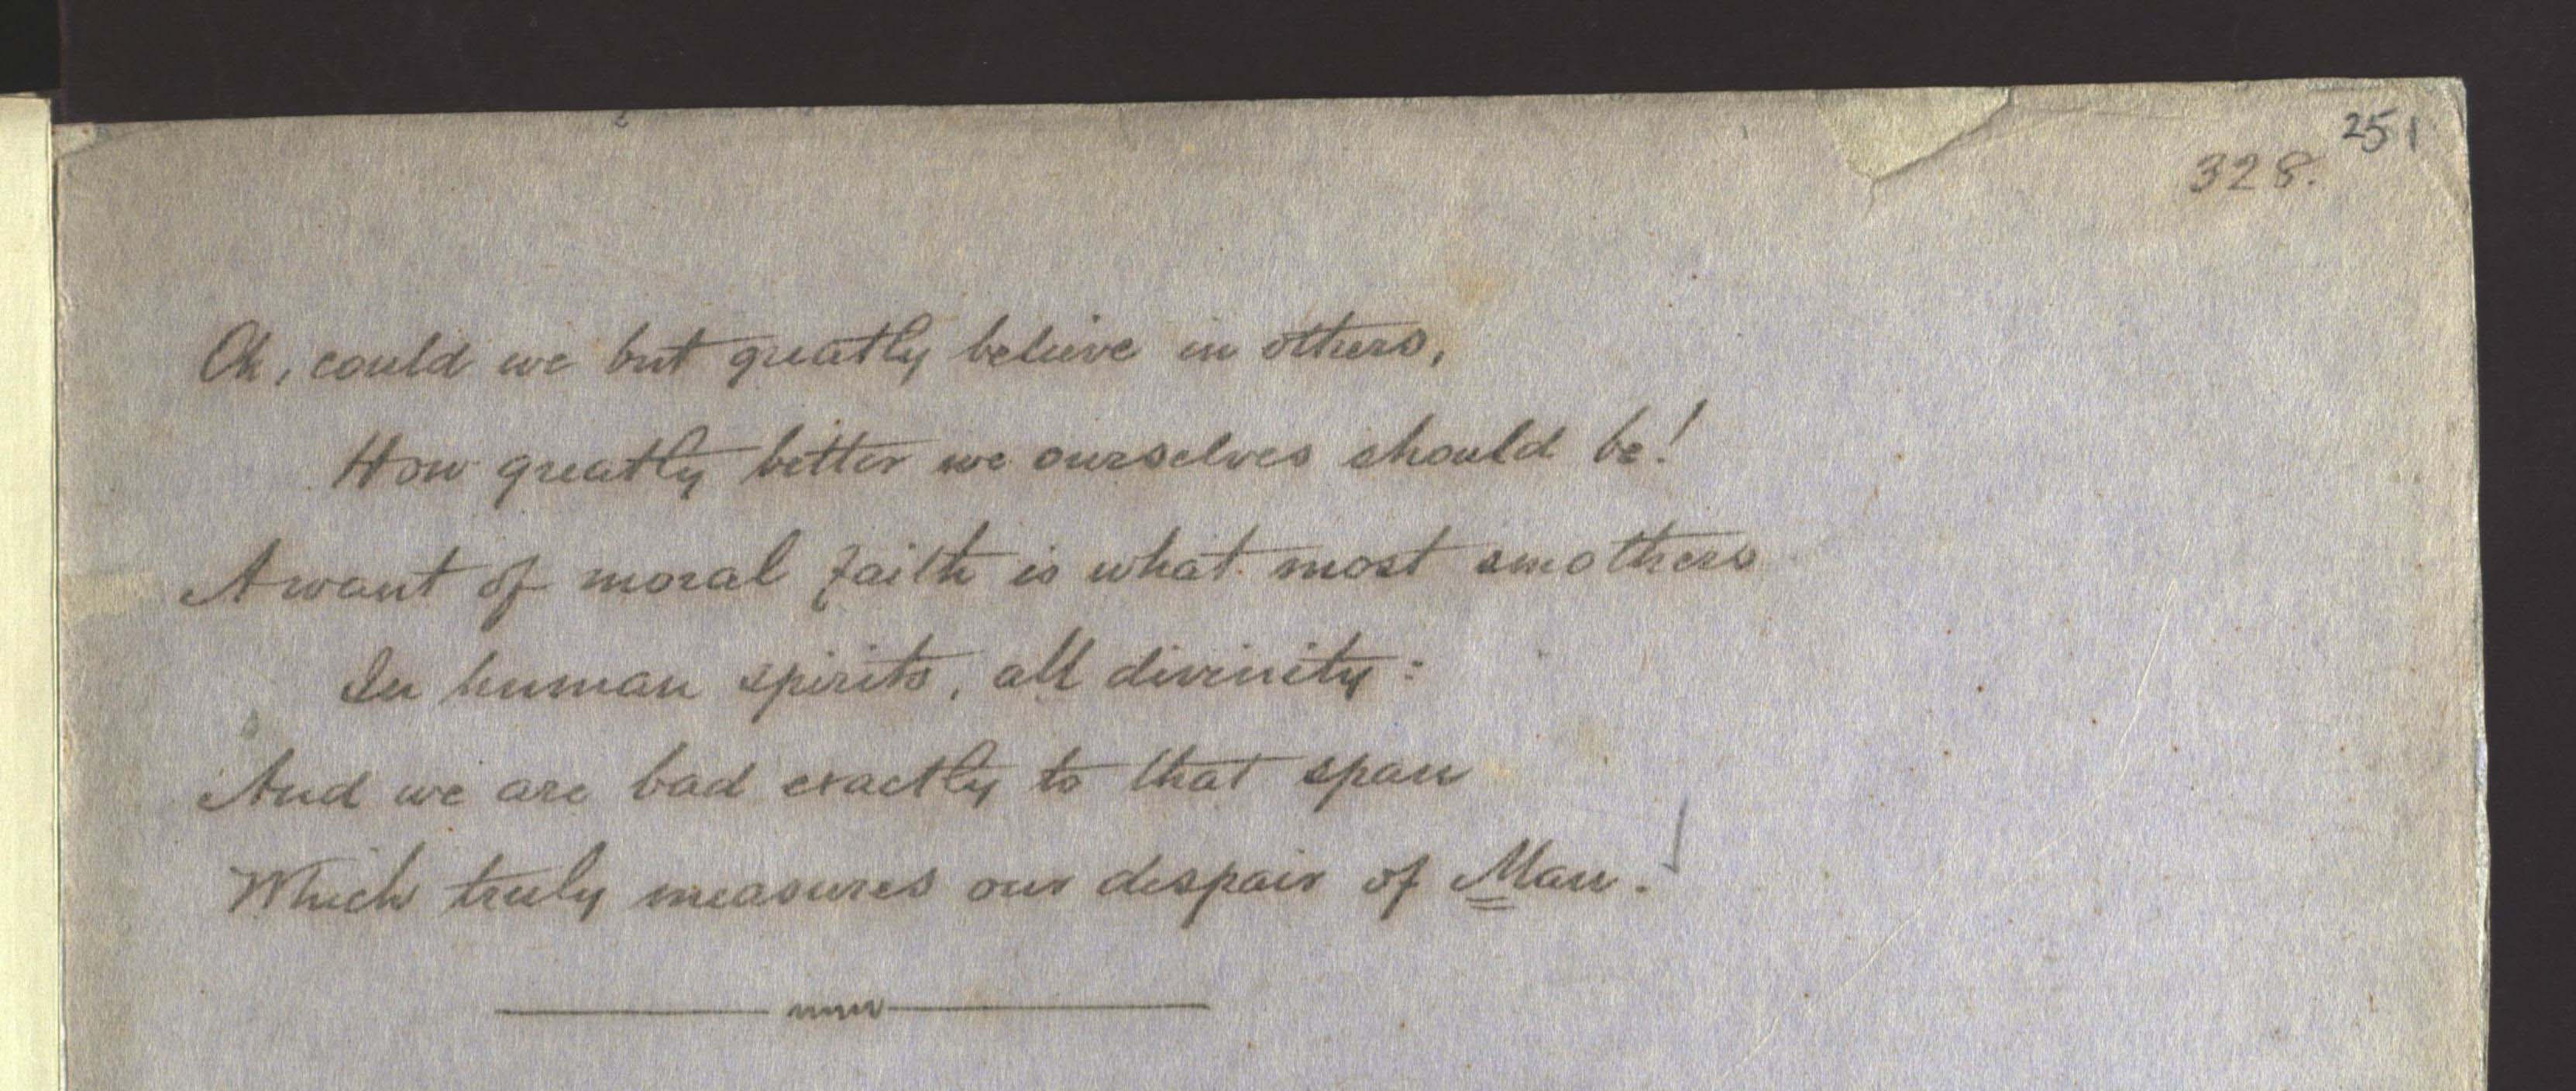 251
328.
Oh, could we but greatly believe in others,
How greatly better we ourselves should be!
A want of moral faith is what most smothers
In human spirits, all divinity:
And we are bad exactly to that span
Which truly measures our despair of Man.!